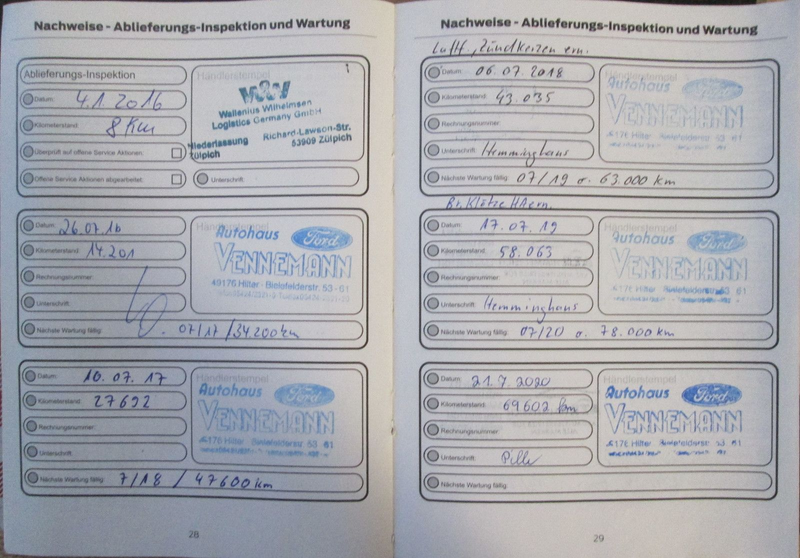 Nachweise - Ablieferungs-Inspektion und Wartung
Ablieferungs-Inspektion
Händlerstempel
Datum: 4.1.2016
Kilometerstand: 8 Km
Überprüft auf offene Service Aktionen:
Offene Service Aktionen abgearbeitet:
W&W
Wallenius Wilhelmsen
Logistics Germany GmbH
Niederlassung Richard-Lawson-Str.
Zülpich 53909 Zülpich
Unterschrift:
Datum: 26.07.16
Kilometerstand: 14.201
Rechnungsnummer:
Unterschrift:
Nächste Wartung fällig: 07/17 / 34.200 km
Händlerstempel
Autohaus Ford
VENNEMANN
49176 Hilter - Bielefelderstr. 53 - 61
Datum: 10.07.17
Kilometerstand: 27692
Rechnungsnummer:
Unterschrift:
Nächste Wartung fällig: 7/18 / 47600 km
Händlerstempel
Autohaus Ford
VENNEMANN
49176 Hilter Bielefelderstr. 53 61
28
Nachweise - Ablieferungs-Inspektion und Wartung
Luft, Zündkerzen ern.
Datum: 06.07.2018
Kilometerstand: 43.035
Rechnungsnummer:
Unterschrift: Hemminghaus
Nächste Wartung fällig: 07/19 o. 63.000 km
Autohaus Ford
VENNEMANN
Br. Klötze H Ern.
Datum: 17.07.19
Kilometerstand: 58.063
Rechnungsnummer:
Unterschrift: Hemminghaus
Nächste Wartung fällig: 07/20 o. 78.000 km
Autohaus Ford
VENNEMANN
Datum: 21.7.2020
Kilometerstand: 69602 km
Rechnungsnummer:
Unterschrift:
Nächste Wartung fällig:
Händlerstempel
Autohaus Ford
VENNEMANN
29